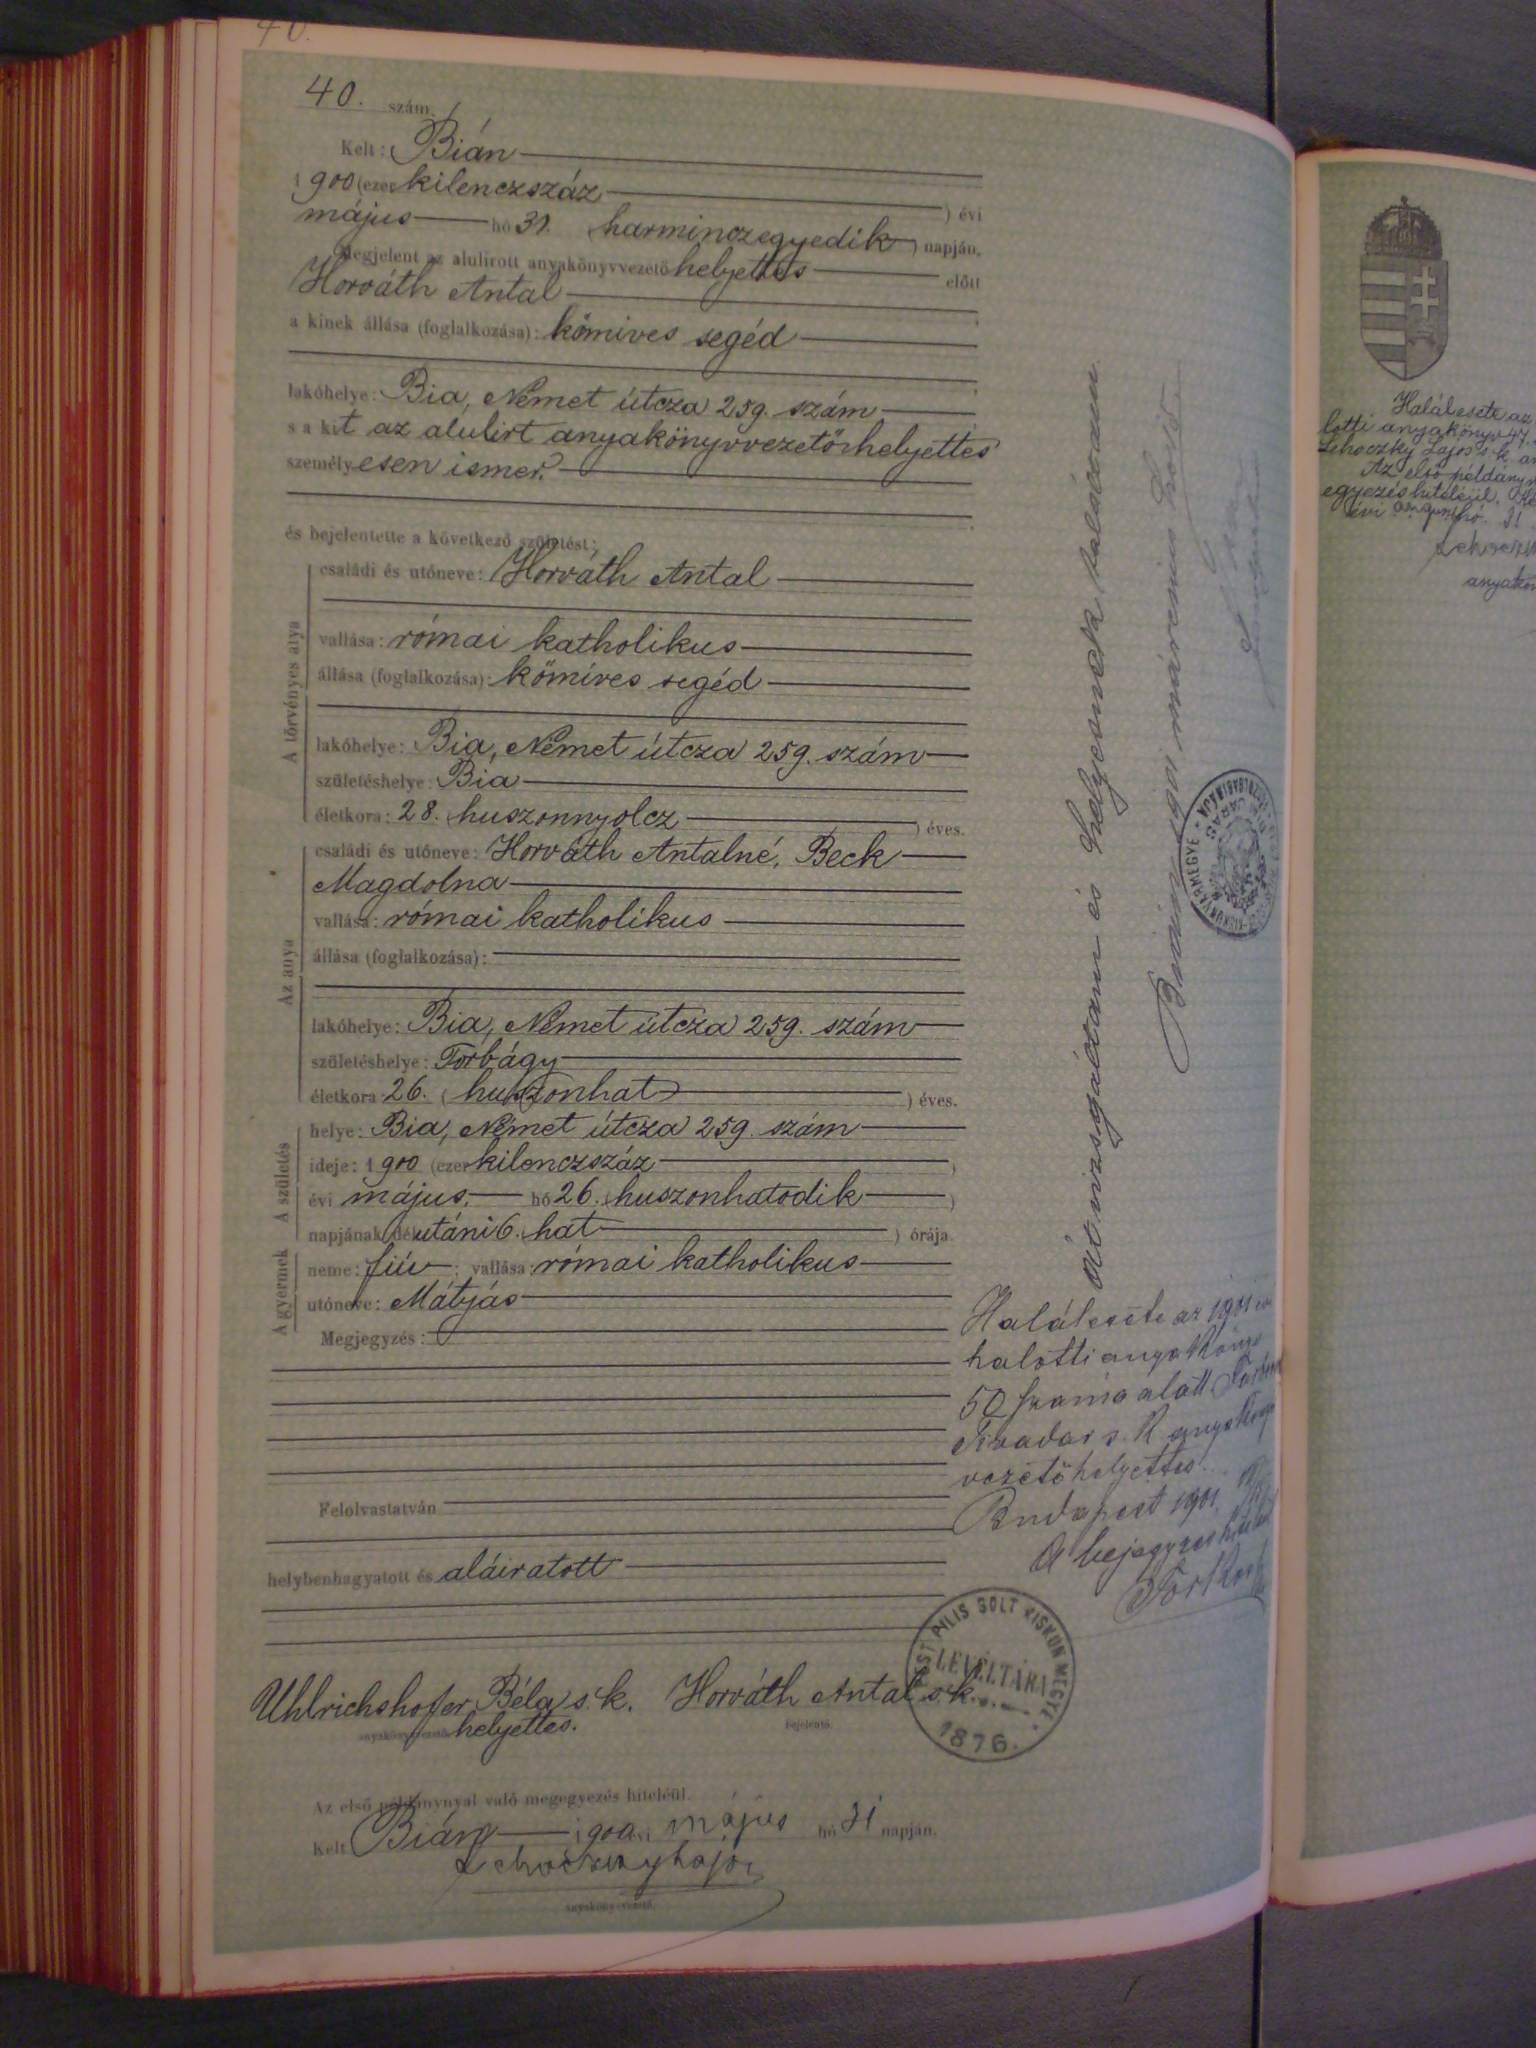 40.
40. szám.
Kelt: Bián
1900 (ezer kilenczszáz ) évi
május hó 31. (harminczegyedik) napján,
Megjelent az alulirott anyakönyvvezető helyettes előtt
Horváth Antal
a kinek állása (foglalkozása): kőmives segéd
lakóhelye: Bia, Német útcza 259. szám
s a kit az alulirt anyakönyvvezetőhelyettes
személyesen ismer.
és bejelentette a következő születést:
A törvényes atya
családi és utóneve: Horváth Antal
vallása: római katholikus
állása (foglalkozása): kőmíves segéd
lakóhelye: Bia, Német útcza 259. szám
születéshelye: Bia
életkora: 28. (huszonnyolcz ) éves.
Az anya
családi és utóneve: Horváth Antalné, Beck
Magdolna
vallása: római katholikus
állása (foglalkozása):
lakóhelye: Bia, Német útcza 259. szám
születéshelye: Torbágy
életkora: 26. (huszonhat ) éves.
A születés
helye: Bia, Német útcza 259. szám
ideje: 1900 (ezer kilenczszáz )
évi május hó 26. (huszonhatodik )
napjának délutáni 6. (hat ) órája.
A gyermek
neme: fiú ; vallása: római katholikus
utóneve: Mátyás
Megjegyzés:
Felolvastatván
helybenhagyatott és aláiratott
Uhlrichshofer Béla s. k. Horváth Antal s. k.
anyakönyvvezető helyettes. bejelentő.
Az első példánynyal való megegyezés hiteléül.
Kelt Bián 1900 évi május hó 31 napján.
Lehoczky Lajos
anyakönyvvezető.
PEST PILIS SOLT KISKUN MEGYE
LEVÉLTÁRA
1876.
Átvizsgáltam és helyesnek találtam.
1901 március
Halálesete az 1901 évi
halotti anyakönyv
50 száma alatt
Tivadar s. k. anyakönyv
vezető helyettes.
Budapest 1901.
A bejegyzés
Halálesete az
lotti anyakönyv 47.
Lehoczky Lajos s. k. an
Az első példány
egyezés hiteléül.
évi 31
anyakön